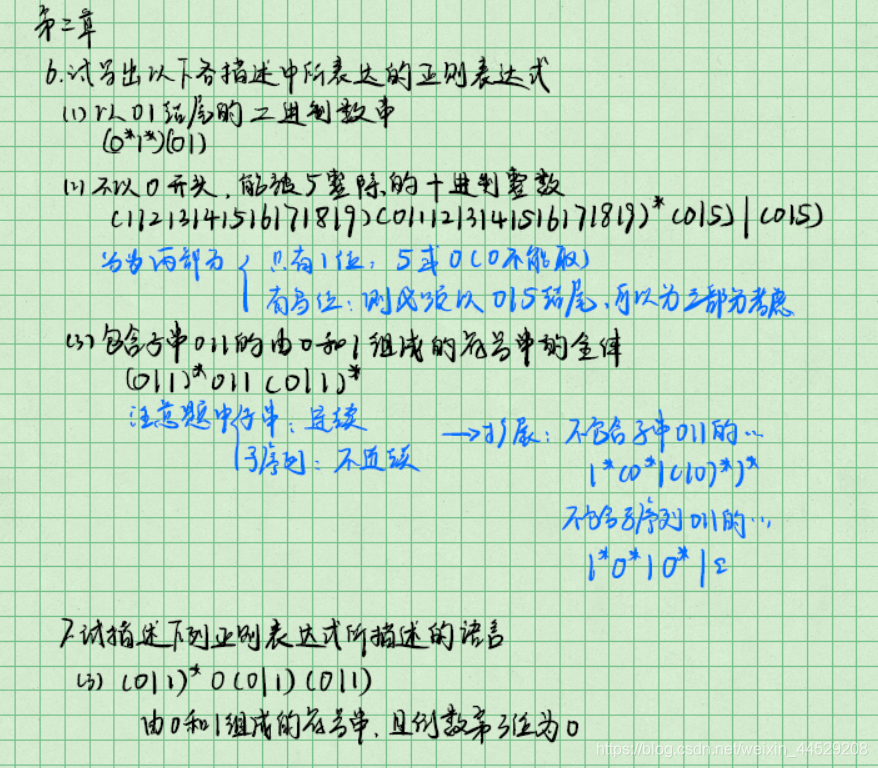 第二章
6.试写出以下各描述中所表达的正则表达式
(1) 以01结尾的二进制数串
(0*1*)(01)
(2) 不以0开头,能被5整除的十进制整数
(1|2|3|4|5|6|7|8|9)(0|1|2|3|4|5|6|7|8|9)*(0|5)|(0|5)
分为两部分 { 只有1位:5或0(0不能取)
有多位:则必须以0|5结尾,可以为三部分考虑
(3) 包含子串011的由0和1组成的符号串的全体
(0|1)*011(0|1)*
注意题中 { 子串:连续
子序列:不连续
→扩展:不包含子串011的…
1*(0*|(10)*)*
不包含子序列011的…
1*0*10*|ε
7.试描述下列正则表达式所描述的语言
(3) (0|1)*0(0|1)(0|1)
由0和1组成的符号串,且倒数第3位为0
https://blog.csdn.net/weixin_44529208